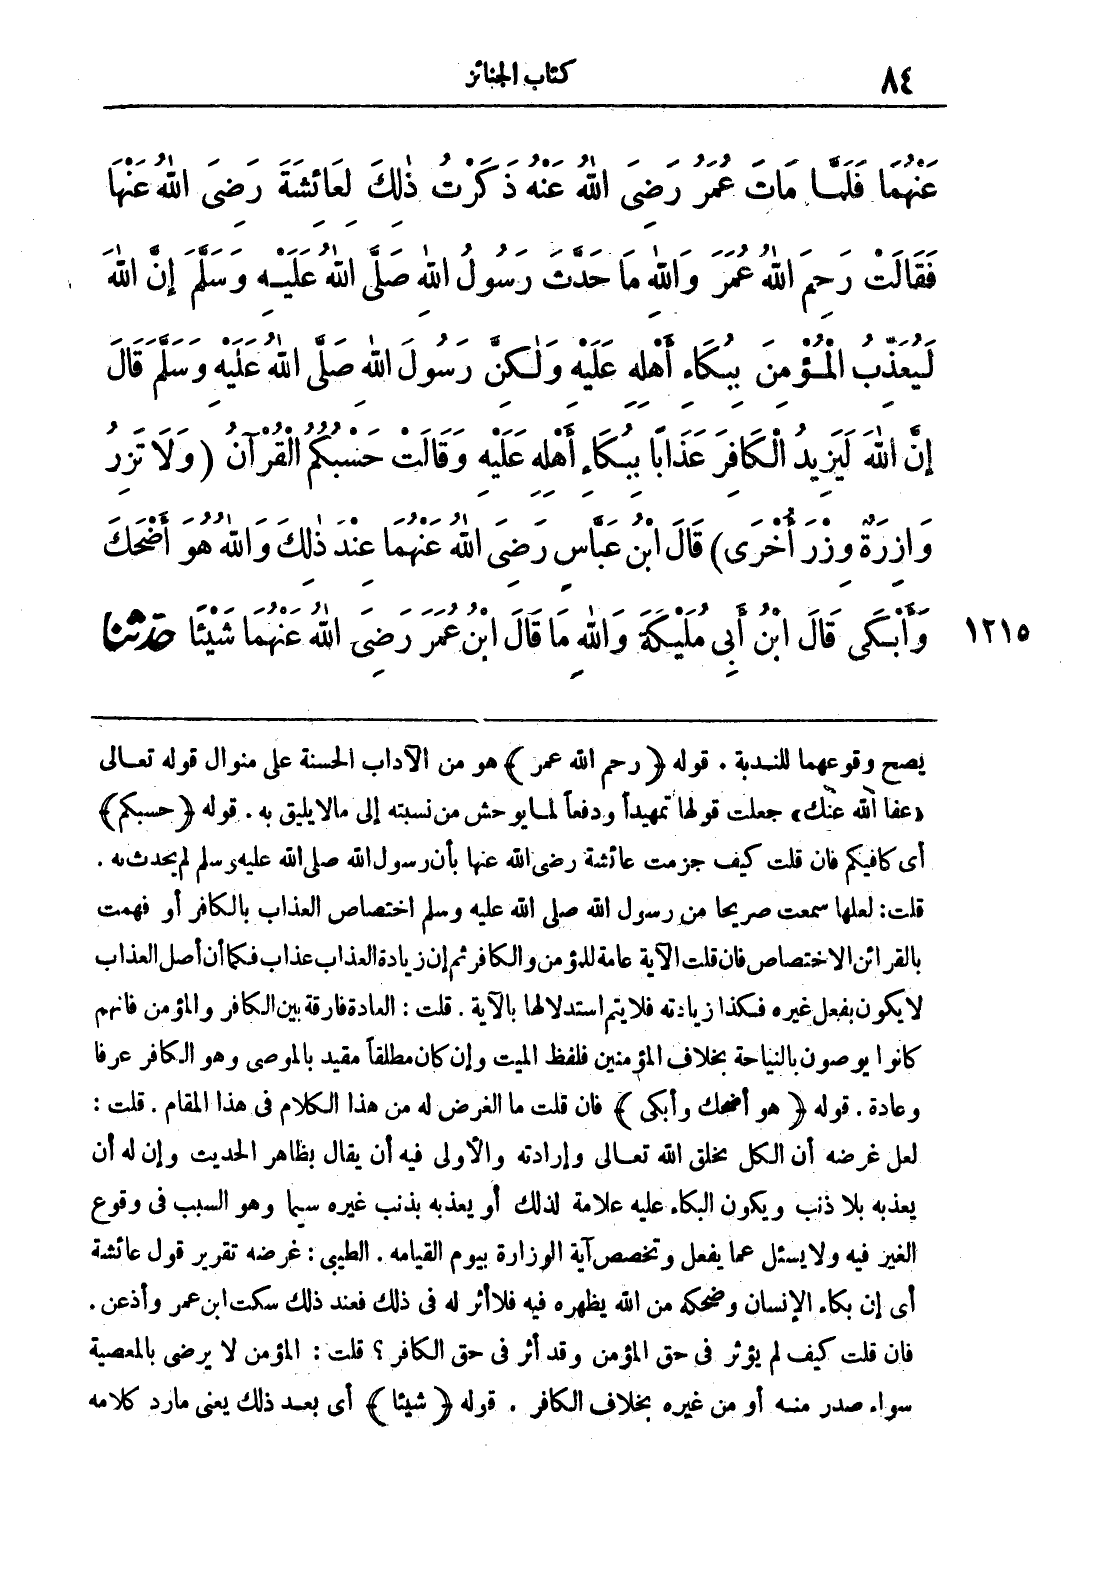 ٨٤ كتاب الجنائز
عَنْهُمَا فَلَمَّا مَاتَ عُمَرُ رَضِيَ اللهُ عَنْهُ ذَكَرْتُ ذٰلِكَ لِعَائِشَةَ رَضِيَ اللهُ عَنْهَا
فَقَالَتْ رَحِمَ اللهُ عُمَرَ وَاللهِ مَا حَدَّثَ رَسُولُ اللهِ صَلَّى اللهُ عَلَيْهِ وَسَلَّمَ إِنَّ اللهَ
لَيُعَذِّبُ الْمُؤْمِنَ بِبُكَاءِ أَهْلِهِ عَلَيْهِ وَلٰكِنَّ رَسُولَ اللهِ صَلَّى اللهُ عَلَيْهِ وَسَلَّمَ قَالَ
إِنَّ اللهَ لَيَزِيدُ الْكَافِرَ عَذَابًا بِبُكَاءِ أَهْلِهِ عَلَيْهِ وَقَالَتْ حَسْبُكُمُ الْقُرْآنُ (وَلَا تَزِرُ
وَازِرَةٌ وِزْرَ أُخْرَى) قَالَ ابْنُ عَبَّاسٍ رَضِيَ اللهُ عَنْهُمَا عِنْدَ ذٰلِكَ وَاللهُ هُوَ أَضْحَكَ
وَأَبْكَى قَالَ ابْنُ أَبِي مُلَيْكَةَ وَاللهِ مَا قَالَ ابْنُ عُمَرَ رَضِيَ اللهُ عَنْهُمَا شَيْئًا حَدَّثَنَا ١٢١٥
يصح وقوعهما للندبة . قوله ﴿رحم الله عمر﴾ هو من الآداب الحسنة على منوال قوله تعالى
«عفا الله عنك» جعلت قولها تمهيداً ودفعاً لما يوحش من نسبته إلى مالا يليق به . قوله ﴿حسبكم﴾
أى كافيكم فان قلت كيف جزمت عائشة رضى الله عنها بأن رسول الله صلى الله عليه وسلم لم يحدث به .
قلت: لعلها سمعت صريحا من رسول الله صلى الله عليه وسلم اختصاص العذاب بالكافر أو فهمت
بالقرائن الاختصاص فان قلت الآية عامة للمؤمن والكافر ثم إن زيادة العذاب عذاب فكما أن أصل العذاب
لا يكون بفعل غيره فكذا زيادته فلا يتم استدلالها بالآية . قلت : العادة فارقة بين الكافر والمؤمن فانهم
كانوا يوصون بالنياحة بخلاف المؤمنين فلفظ الميت وإن كان مطلقاً مقيد بالموصى وهو الكافر عرفا
وعادة . قوله ﴿هو أضحك وأبكى﴾ فان قلت ما الغرض له من هذا الكلام فى هذا المقام . قلت :
لعل غرضه أن الكل بخلق الله تعالى وإرادته والأولى فيه أن يقال بظاهر الحديث وإن له أن
يعذبه بلا ذنب ويكون البكاء عليه علامة لذلك أو يعذبه بذنب غيره سيما وهو السبب فى وقوع
الغير فيه ولا يسئل عما يفعل وتخصص آية الوزارة بيوم القيامه . الطيبى : غرضه تقرير قول عائشة
أى إن بكاء الإنسان وضحكه من الله يظهره فيه فلا أثر له فى ذلك فعند ذلك سكت ابن عمر وأذعن .
فان قلت كيف لم يؤثر فى حق المؤمن وقد أثر فى حق الكافر ؟ قلت : المؤمن لا يرضى بالمعصية
سواء صدر منه أو من غيره بخلاف الكافر . قوله ﴿شيئا﴾ أى بعد ذلك يعنى مارد كلامه